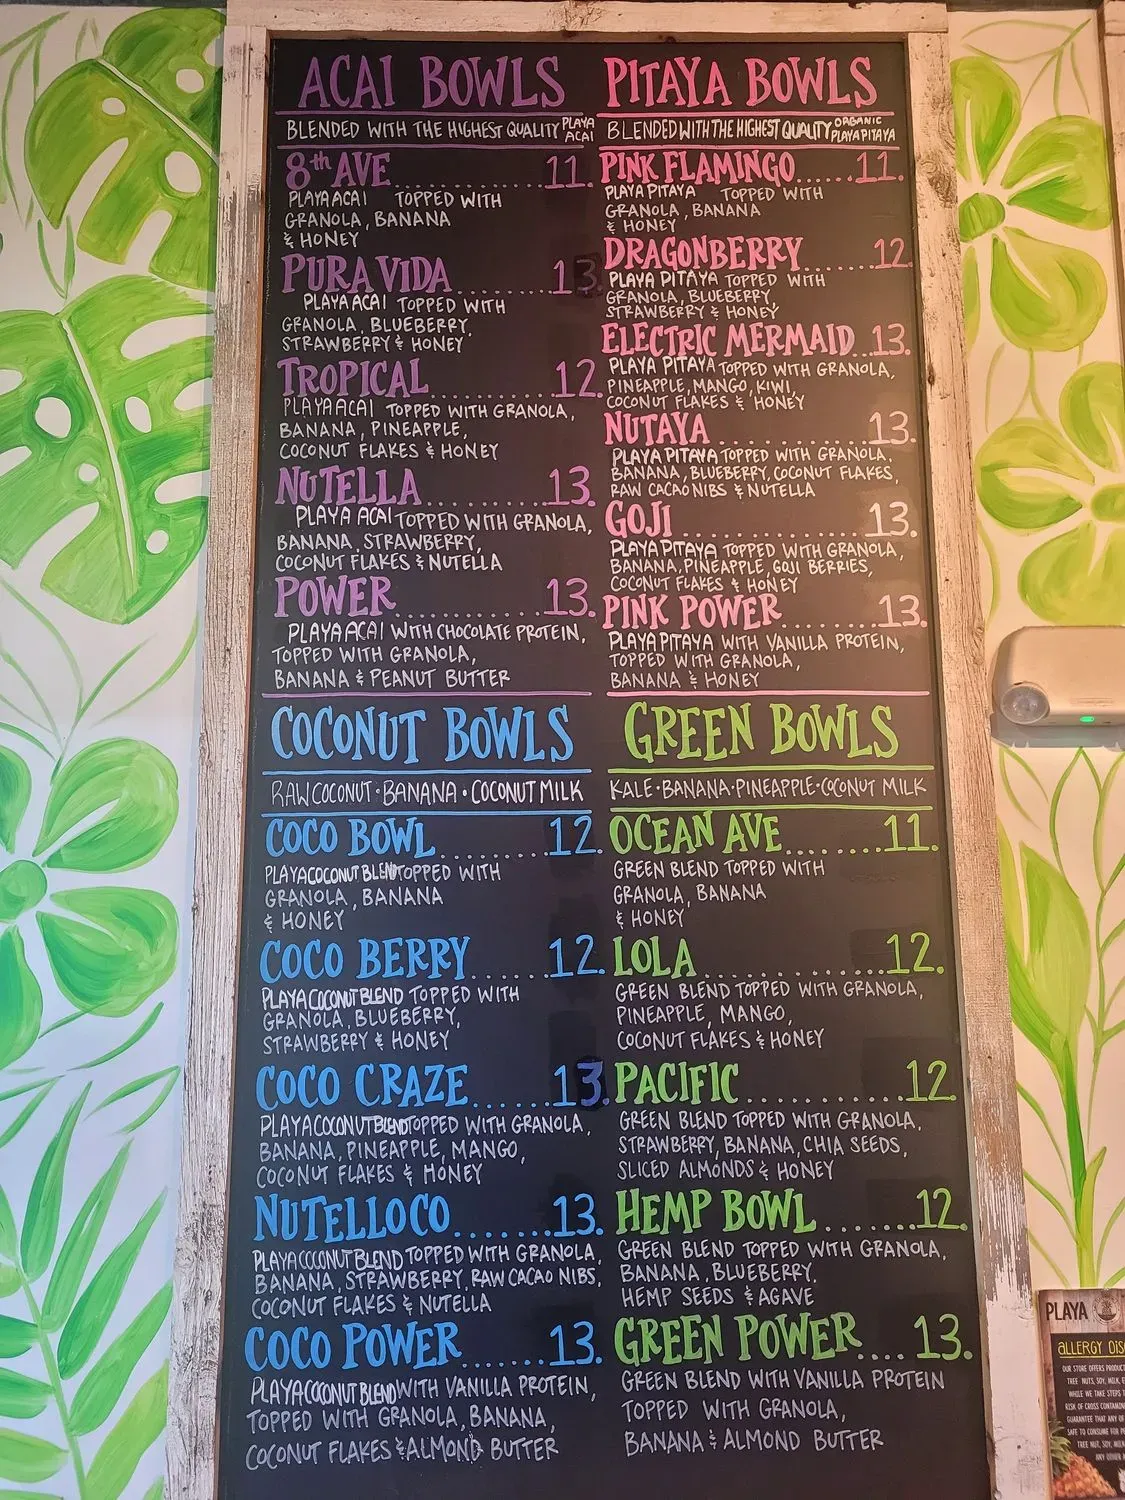 ACAI BOWLS
BLENDED WITH THE HIGHEST QUALITY PLAYA ACAI
8th AVE ........ 11.
PLAYA ACAI TOPPED WITH
GRANOLA, BANANA
& HONEY
PURA VIDA ........ 13
PLAYA ACAI TOPPED WITH
GRANOLA, BLUEBERRY,
STRAWBERRY & HONEY
TROPICAL ........ 12.
PLAYA ACAI TOPPED WITH GRANOLA,
BANANA, PINEAPPLE,
COCONUT FLAKES & HONEY
NUTELLA ........ 13.
PLAYA ACAI TOPPED WITH GRANOLA,
BANANA, STRAWBERRY,
COCONUT FLAKES & NUTELLA
POWER ........ 13.
PLAYA ACAI WITH CHOCOLATE PROTEIN,
TOPPED WITH GRANOLA,
BANANA & PEANUT BUTTER
PITAYA BOWLS
BLENDED WITH THE HIGHEST QUALITY ORGANIC PLAYA PITAYA
PINK FLAMINGO ...... 11.
PLAYA PITAYA TOPPED WITH
GRANOLA, BANANA
& HONEY
DRAGONBERRY ...... 12.
PLAYA PITAYA TOPPED WITH
GRANOLA, BLUEBERRY,
STRAWBERRY & HONEY
ELECTRIC MERMAID ... 13.
PLAYA PITAYA TOPPED WITH GRANOLA,
PINEAPPLE, MANGO, KIWI,
COCONUT FLAKES & HONEY
NUTAYA ........ 13.
PLAYA PITAYA TOPPED WITH GRANOLA,
BANANA, BLUEBERRY, COCONUT FLAKES,
RAW CACAO NIBS & NUTELLA
GOJI ........ 13.
PLAYA PITAYA TOPPED WITH GRANOLA,
BANANA, PINEAPPLE, GOJI BERRIES,
COCONUT FLAKES & HONEY
PINK POWER ........ 13.
PLAYA PITAYA WITH VANILLA PROTEIN,
TOPPED WITH GRANOLA,
BANANA & HONEY
COCONUT BOWLS
RAW COCONUT • BANANA • COCONUT MILK
COCO BOWL ........ 12.
PLAYA COCONUT BLEND TOPPED WITH
GRANOLA, BANANA
& HONEY
COCO BERRY ...... 12.
PLAYA COCONUT BLEND TOPPED WITH
GRANOLA, BLUEBERRY,
STRAWBERRY & HONEY
COCO CRAZE ...... 13.
PLAYA COCONUT BLEND TOPPED WITH GRANOLA,
BANANA, PINEAPPLE, MANGO,
COCONUT FLAKES & HONEY
NUTELLOCO ....... 13.
PLAYA COCONUT BLEND TOPPED WITH GRANOLA,
BANANA, STRAWBERRY, RAW CACAO NIBS,
COCONUT FLAKES & NUTELLA
COCO POWER ....... 13.
PLAYA COCONUT BLEND WITH VANILLA PROTEIN,
TOPPED WITH GRANOLA, BANANA,
COCONUT FLAKES & ALMOND BUTTER
GREEN BOWLS
KALE • BANANA • PINEAPPLE • COCONUT MILK
OCEAN AVE ........ 11.
GREEN BLEND TOPPED WITH
GRANOLA, BANANA
& HONEY
LOLA ........ 12.
GREEN BLEND TOPPED WITH GRANOLA,
PINEAPPLE, MANGO,
COCONUT FLAKES & HONEY
PACIFIC ........ 12.
GREEN BLEND TOPPED WITH GRANOLA,
STRAWBERRY, BANANA, CHIA SEEDS,
SLICED ALMONDS & HONEY
HEMP BOWL ....... 12.
GREEN BLEND TOPPED WITH GRANOLA,
BANANA, BLUEBERRY,
HEMP SEEDS & AGAVE
GREEN POWER .... 13.
GREEN BLEND WITH VANILLA PROTEIN
TOPPED WITH GRANOLA,
BANANA & ALMOND BUTTER
PLAYA
ALLERGY
OUR STORE OFFERS
TREE NUTS, SOY, MILK,
WHILE WE TAKE STEPS
RISK OF CROSS
GUARANTEE THAT ANY OF
SAFE TO CONSUME FOR
TREE NUT, SOY,
ANY OTHER